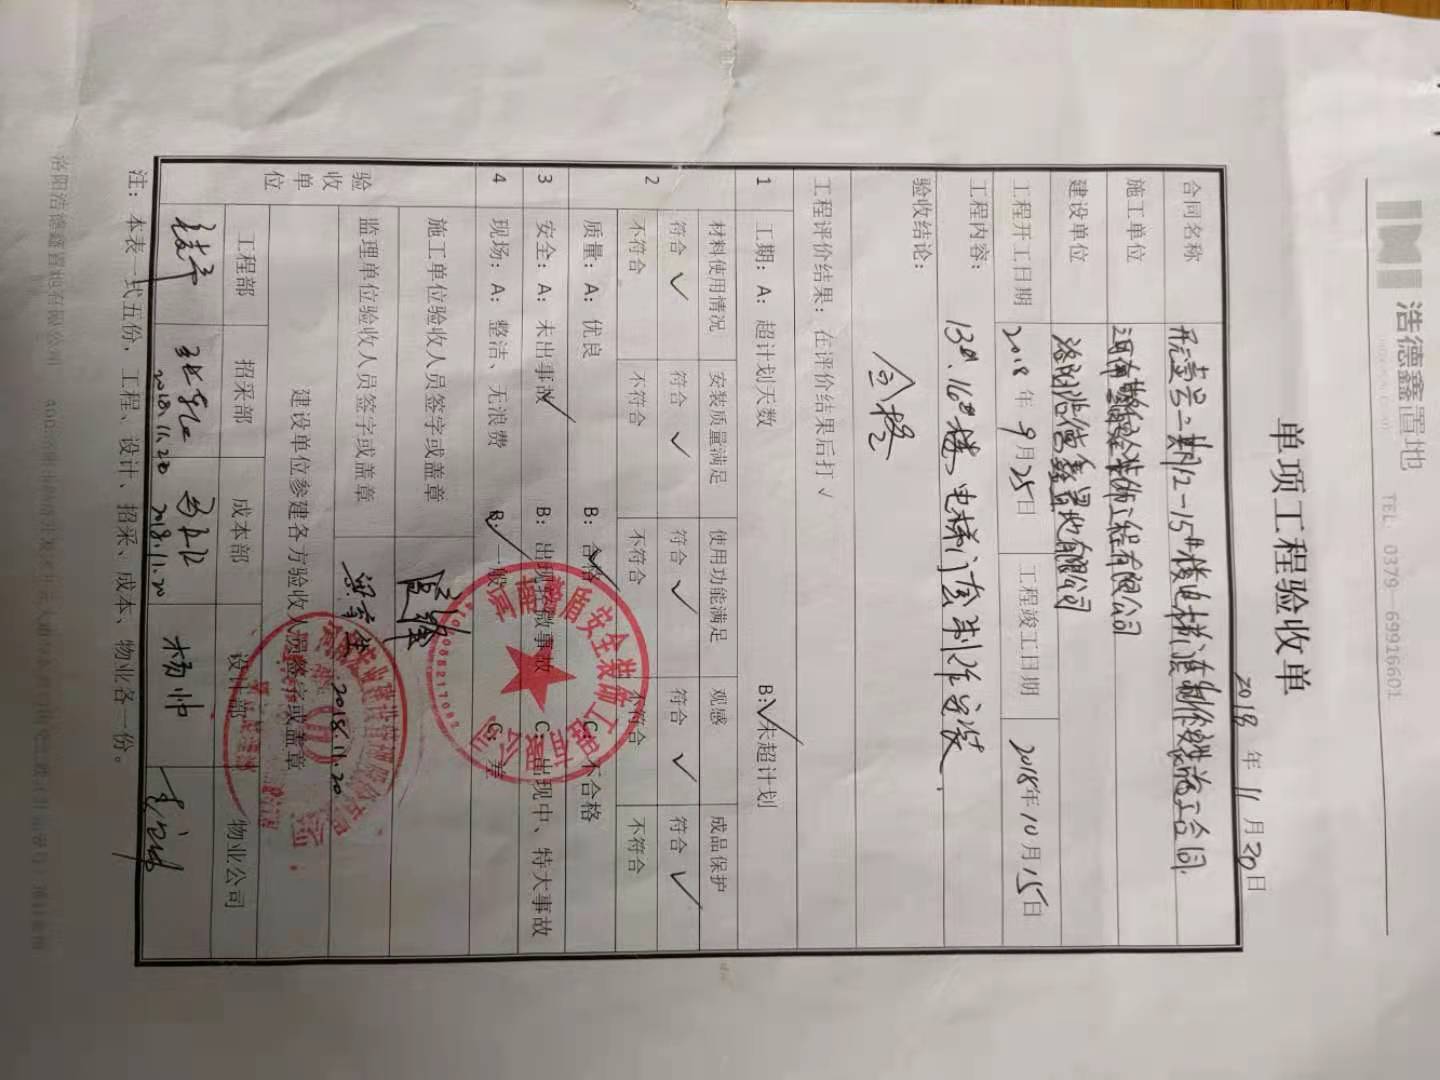 浩德鑫置地
TEL: 0379-69916601
单项工程验收单
2018年11月20日
合同名称 开元壹号二期12-15#楼电梯门套制作安装施工合同
施工单位 装饰工程有限公司
建设单位 洛阳浩德鑫置地有限公司
工程开工日期 2018年9月25日 工程竣工日期 2018年10月15日
工程内容: 13#、16#楼电梯门套制作安装.
验收结论: 合格
工程评价结果:在评价结果后打√
1 工期: A: 超计划天数 B:√未超计划
2 材料使用情况 安装质量满足 使用功能满足 观感 成品保护
符合√ 符合√ 符合√ 符合√ 符合√
不符合 不符合 不符合 不符合 不符合
3 质量: A: 优良 B: 合格√ C: 不合格
安全: A: 未出事故√ B: 出现轻微事故 C: 出现中、特大事故
4 现场: A: 整洁、无浪费 B:√一般 C: 差
验收单位
施工单位验收人员签字或盖章
监理单位验收人员签字或盖章 2018.11.20
建设单位参建各方验收人员签字或盖章
工程部 招采部 成本部 设计部 物业公司
杨帅
2018.11.20 2018.11.20
注:本表一式五份,工程、设计、招采、成本、物业各一份。
洛阳浩德鑫置地有限公司